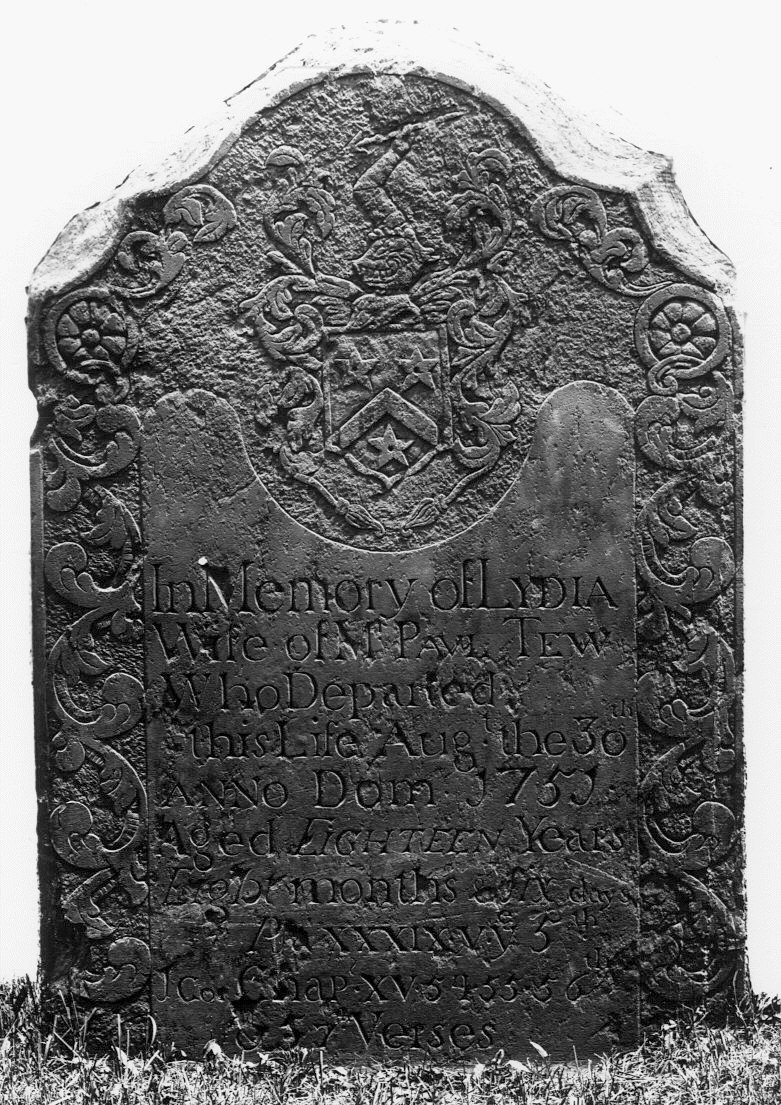 In Memory of LYDIA
Wife of Mr PAUL TEW
Who Departed
this Life Aug the 30th
ANNO Dom 1751
Aged EIGHTEEN Years
Eight months & six days
Ps XXXIX Vye 5th
1 Co. Chap XV 54 55 56th
& 57 Verses